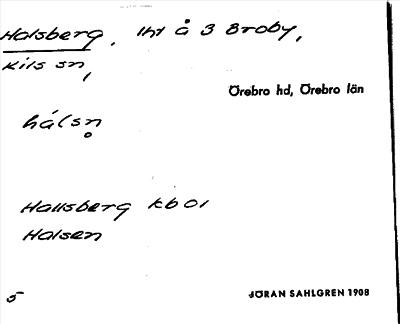 Halsberg, lht å 3 Broby,
Kils sn,
Örebro hd, Örebro län
hálsn̥
Hallsberg kb 01
Halsen
5
JÖRAN SAHLGREN 1908